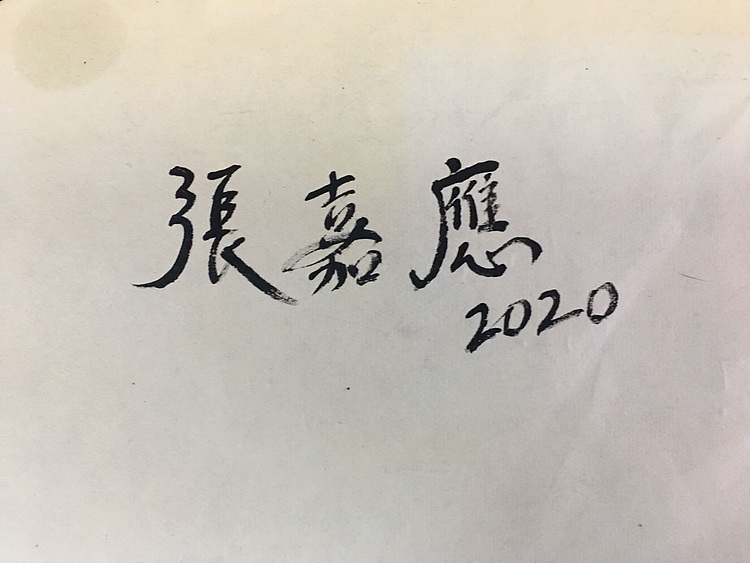 張嘉應
2020